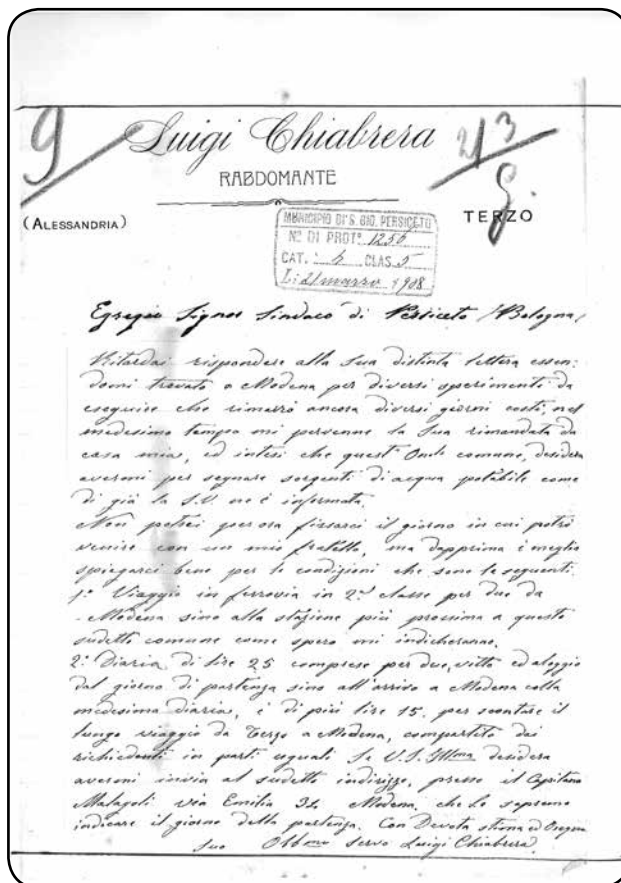 9
Luigi Chiabrera
2/3
RABDOMANTE
(ALESSANDRIA)
TERZO
MUNICIPIO DI S. GIO. PERSICETO
N.º DI PROT.º 1256
CAT. CLAS. 5
Li 21 marzo 1908
Egregio Signor Sindaco di Persiceto (Bologna)
Ritardai rispondere alla Sua distinta lettera essen:
domi trovato a Modena per diversi sperimenti da
eseguire che rimarrò ancora diversi giorni costì, nel
medesimo tempo mi pervenne la Sua rimandata da
casa mia, ed intesi che quest' Onle comune, desidera
averomi per segnare sorgenti di acqua potabile come
di già la S.V. ne è informata.
Non potrei per ora fissarci il giorno in cui potrò
venire con un mio fratello, ma dapprima è meglio
spiegarci bene per le condizioni che sono le seguenti.
1º Viaggio in ferrovia in 2ª classe per due da
Modena sino alla stazione più prossima a questo
sudetto comune come spero mi indicheranno.
2º Diaria di lire 25 comprese per due, vitto ed alogio
dal giorno di partenza sino all'arrivo a Modena colla
medesima diaria, è di più lire 15. per scontare il
lungo viaggio da Terzo a Modena, compartito dai
richiedenti in parti eguali Se V.S. Illma desidera
averomi invia al sudetto indirizzo, presso il Capitano
Malagoli via Emilia 34 Modena, che Le sapremo
indicare il giorno della partenza. Con Devota stima ed
Suo Obbmo servo Luigi Chiabrera